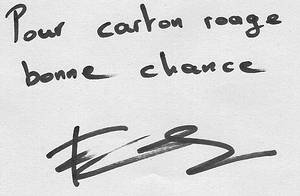 Pour carton rouge
bonne chance